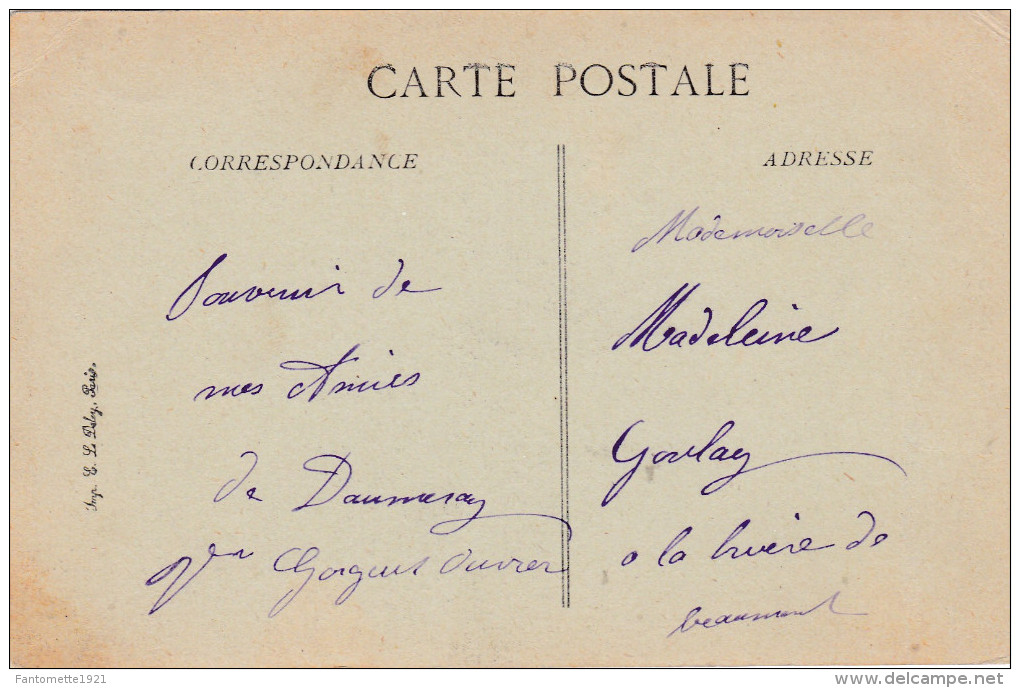 CARTE POSTALE
CORRESPONDANCE
ADRESSE
Souvenir de
mes Amies
de Daumeray
Mademoiselle
Madeleine
Goulay
a la de
beaumont
Imp. E. Le Deley, Paris.
Fantomette1921
www.delcampe.net